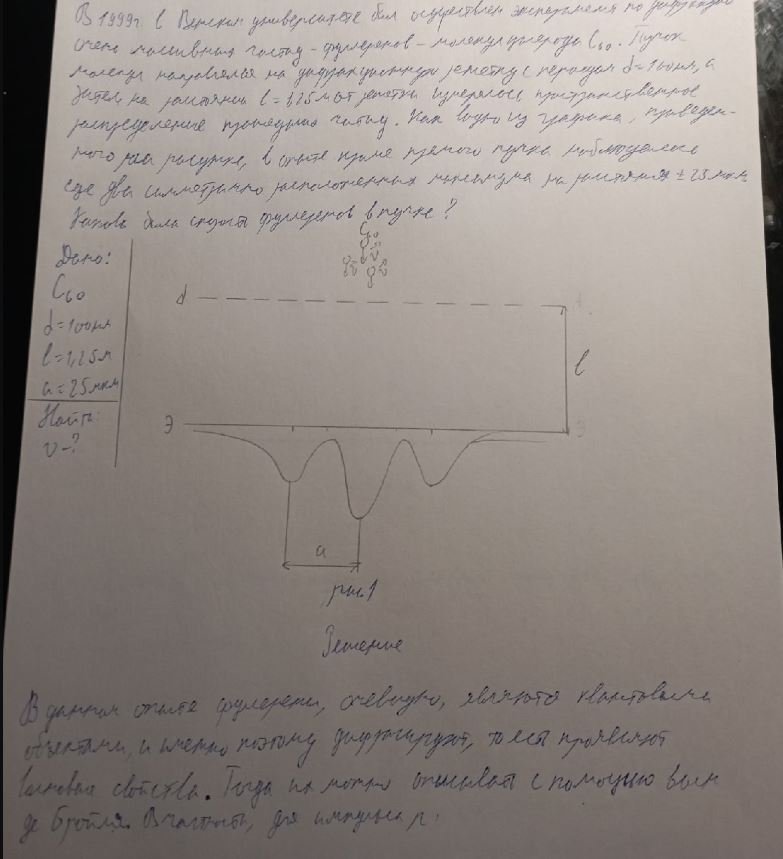 В 1999г. в Венском университете был осуществлен эксперимент по дифракции
очень массивных частиц - фуллеренов - молекул углерода C₆₀. Пучок
молекул направлялся на дифракционную решетку с периодом d = 100нм, а
затем, на расстоянии l = 1,25 м от решетки измерялось пространственное
распределение прошедших частиц. Как видно из графика, приведен-
ного на рисунке, в опыте кроме прямого пучка наблюдалось
еще два симметрично расположенных максимума на расстоянии ± 25 мкм.
Какова была скорость фуллеренов в пучке?
Дано:
C₆₀
d = 100нм
l = 1,25м
a = 25мкм
Найти:
v - ?
C₆₀
v v
v
d
l
Э
a
рис. 1
Решение
В данном опыте фуллерены, очевидно, являются квантовыми
объектами, и именно поэтому дифрагируют, то есть проявляют
волновые свойства. Тогда их можно описывать с помощью волн
де Бройля. В частности, для импульса p: